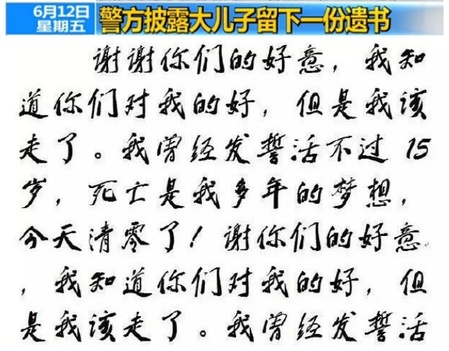 6月12日
星期五
警方披露大儿子留下一份遗书
谢谢你们的好意,我知
道你们对我的好,但是我该
走了。我曾经发誓活不过15
岁,死亡是我多年的梦想,
今天清零了!谢你们的好意
,我知道你们对我的好,但
是我该走了。我曾经发誓活